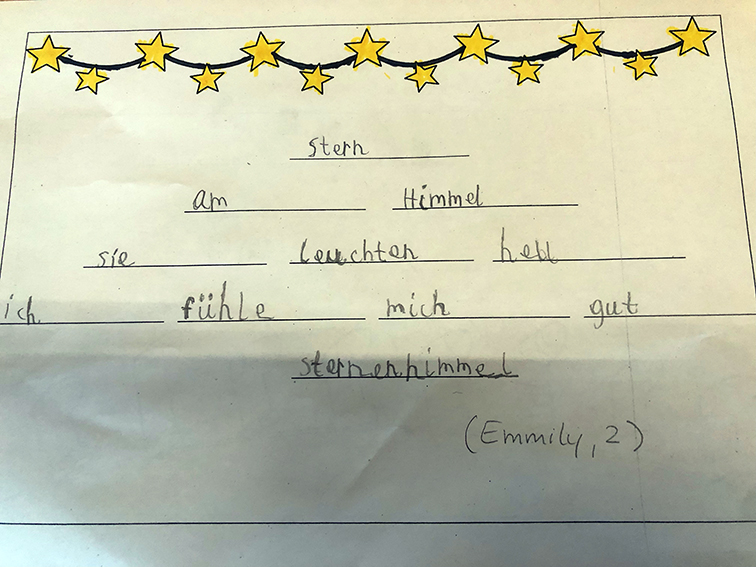 stern
am Himmel
sie leuchten hell
ich fühle mich gut
sternenhimmel
(Emmily, 2)